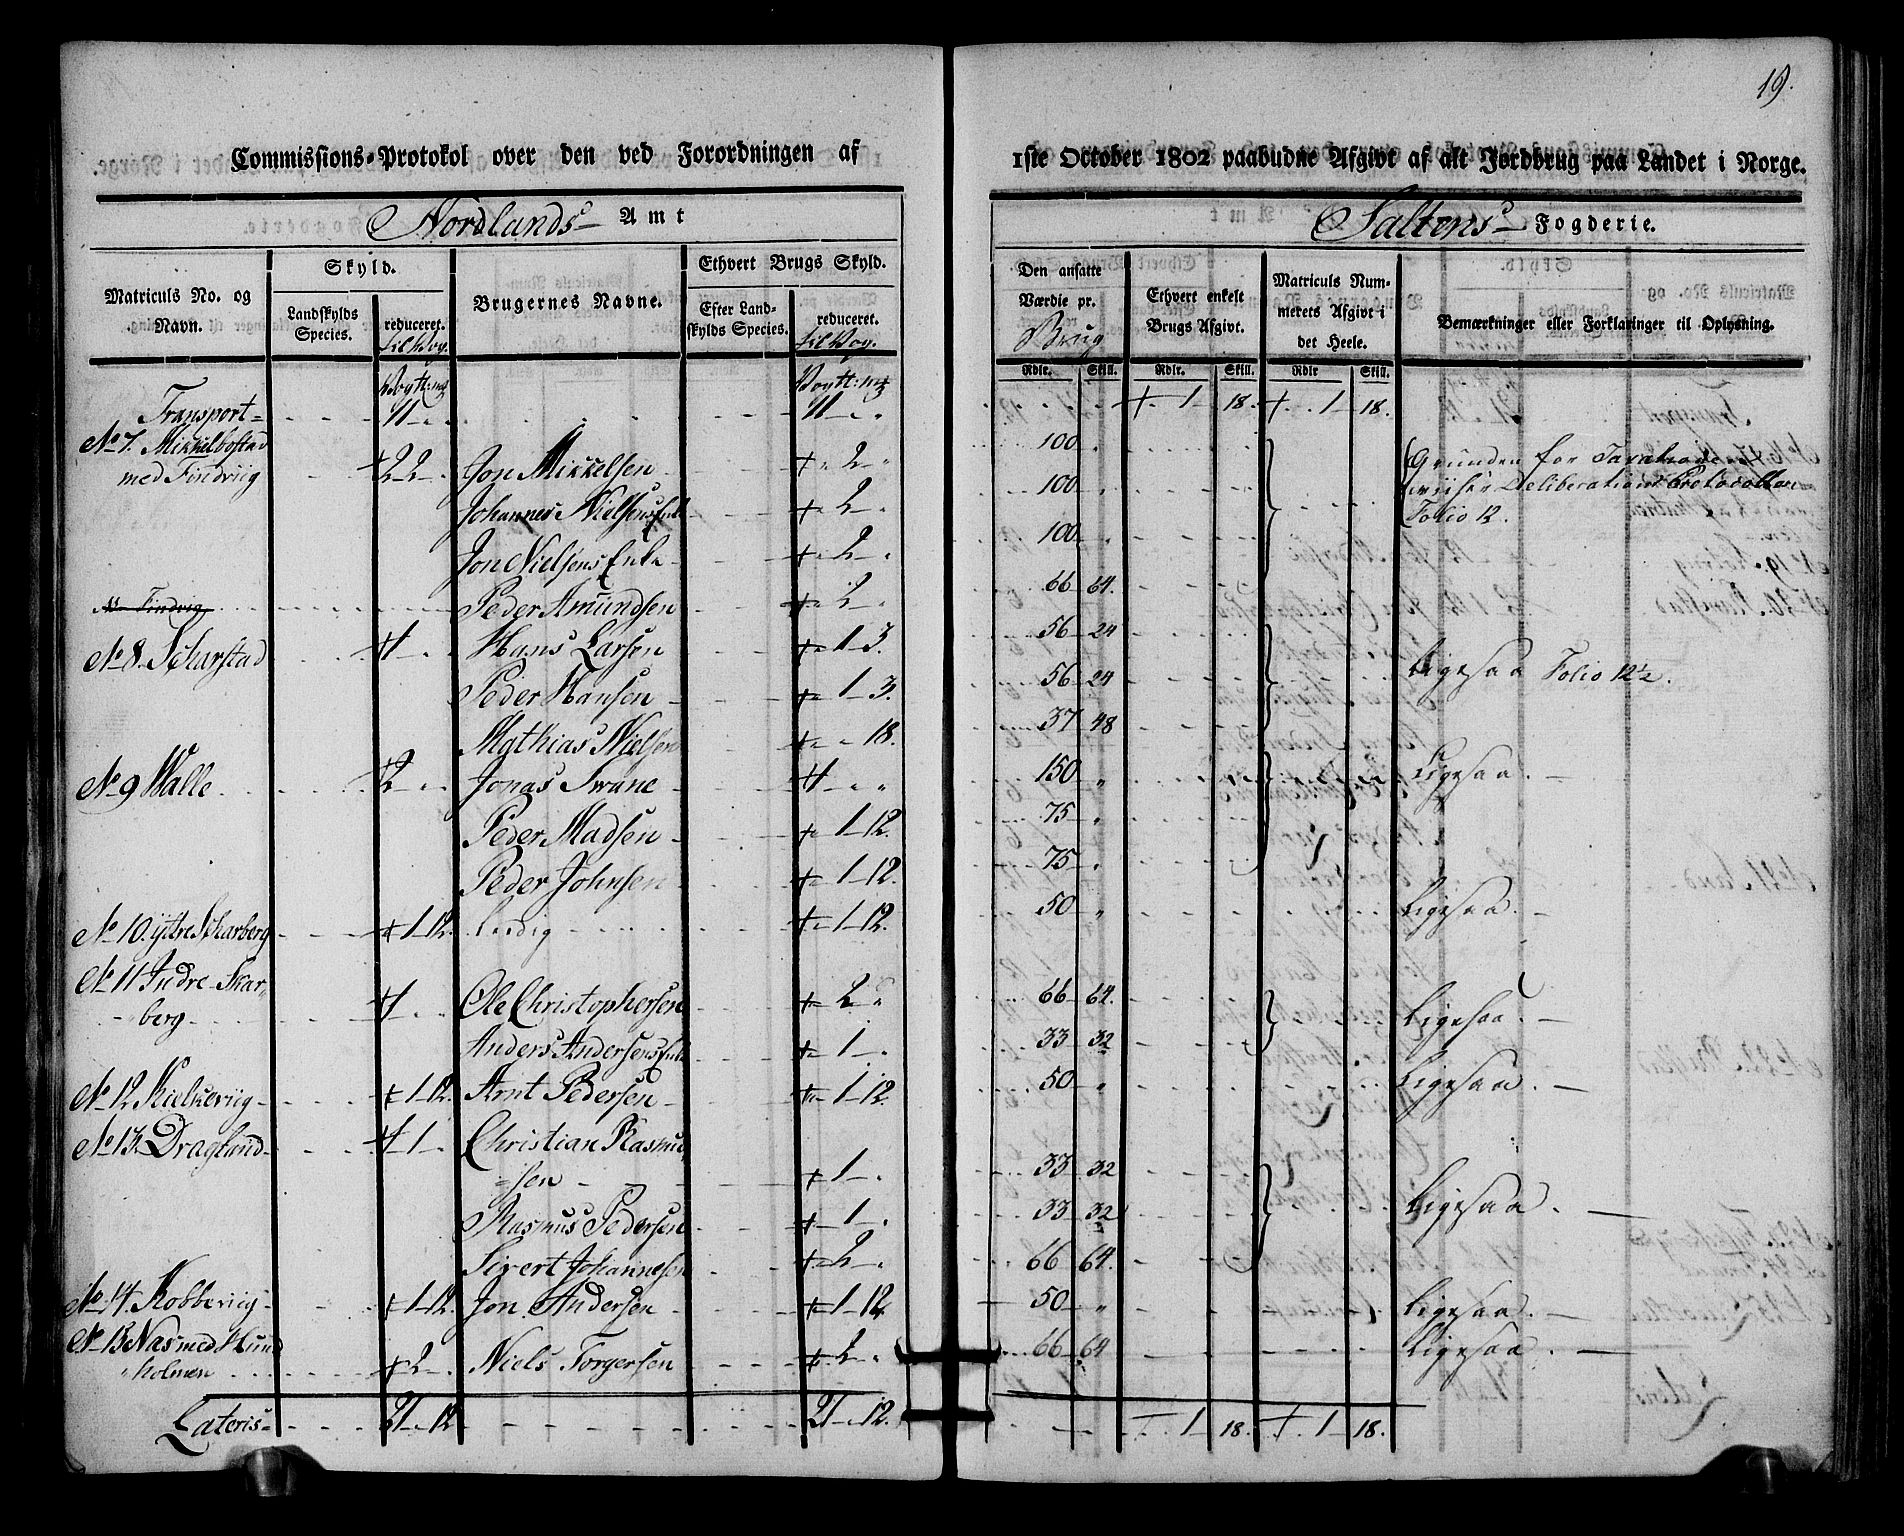 19.
Commissions-Protokol over den ved Forordningen af 1ste October 1802 paabudne Afgivt af alt Jordbrug paa Landet i Norge.
Nordlands Amt
Saltens Fogderie.
Matriculs No. og Navn.
Skyld.
Landskylds Species.
reduceret.
til Vog.
Brugernes Navne.
Ethvert Brugs Skyld.
Efter Landskylds Species.
reduceret.
til Vog.
Den ansatte Værdie pr.
Brug
Ethvert enkelt Brugs Afgivt.
Matriculs Nummerets Afgivt i det Heele.
Bemærkninger eller Forklaringer til Oplysning.
Rdlr. Skill. Rdlr. Skill. Rdlr Skill.
Transport 1 18. 1 18.
No 7. Mikkelbostad 100
med Findviig 2 2 Jon Mikkelsen 2
Grunden for Taxationen
viiser Deliberations Protocollen
Folio 12.
Johannes Nielsens Enke 2 100
Jon Nielsens Enke 2 100
Findvig Peder Amundsen 2 66 64.
No 8. Scharstad Hans Larsen 1 3. 56 24
Peder Hansen 1 3. 56 24 Ligesaa Folio 12½.
Mathias Nielsen 18. 37 48
No 9 Walle 2 Jonas Swane 150 Ligesaa.
Peder Madsen 1 12. 75
Peder Johnsen 1 12. 75
No 10. ÿtre Scharberg 1 12. Ledig 1 12. 50 Ligesaa.
No 11 Indre Skar-
berg Ole Christophersen 2 66 64. Ligesaa.
Anders Andersens Enke 1 33 32
No 12 Kielkeviig 1 12. Arnt Pedersen 1 12. 50 Ligesaa.
No 13. Dragland 1 Christian Rasmu-
sen 1 33 32
Rasmus Pedersen 1 33 32 Ligesaa.
Sivert Johannesen 2 66 64.
No 14. Kobbeviig 1 12. Jon Andersen 1 12. 50 Ligesaa.
No 15 Næs med Hund
holmen 2 Niels Torgersen 2 66 64 Ligesaa.
Lateris 21 12 21 12. 1 18. 1 18.